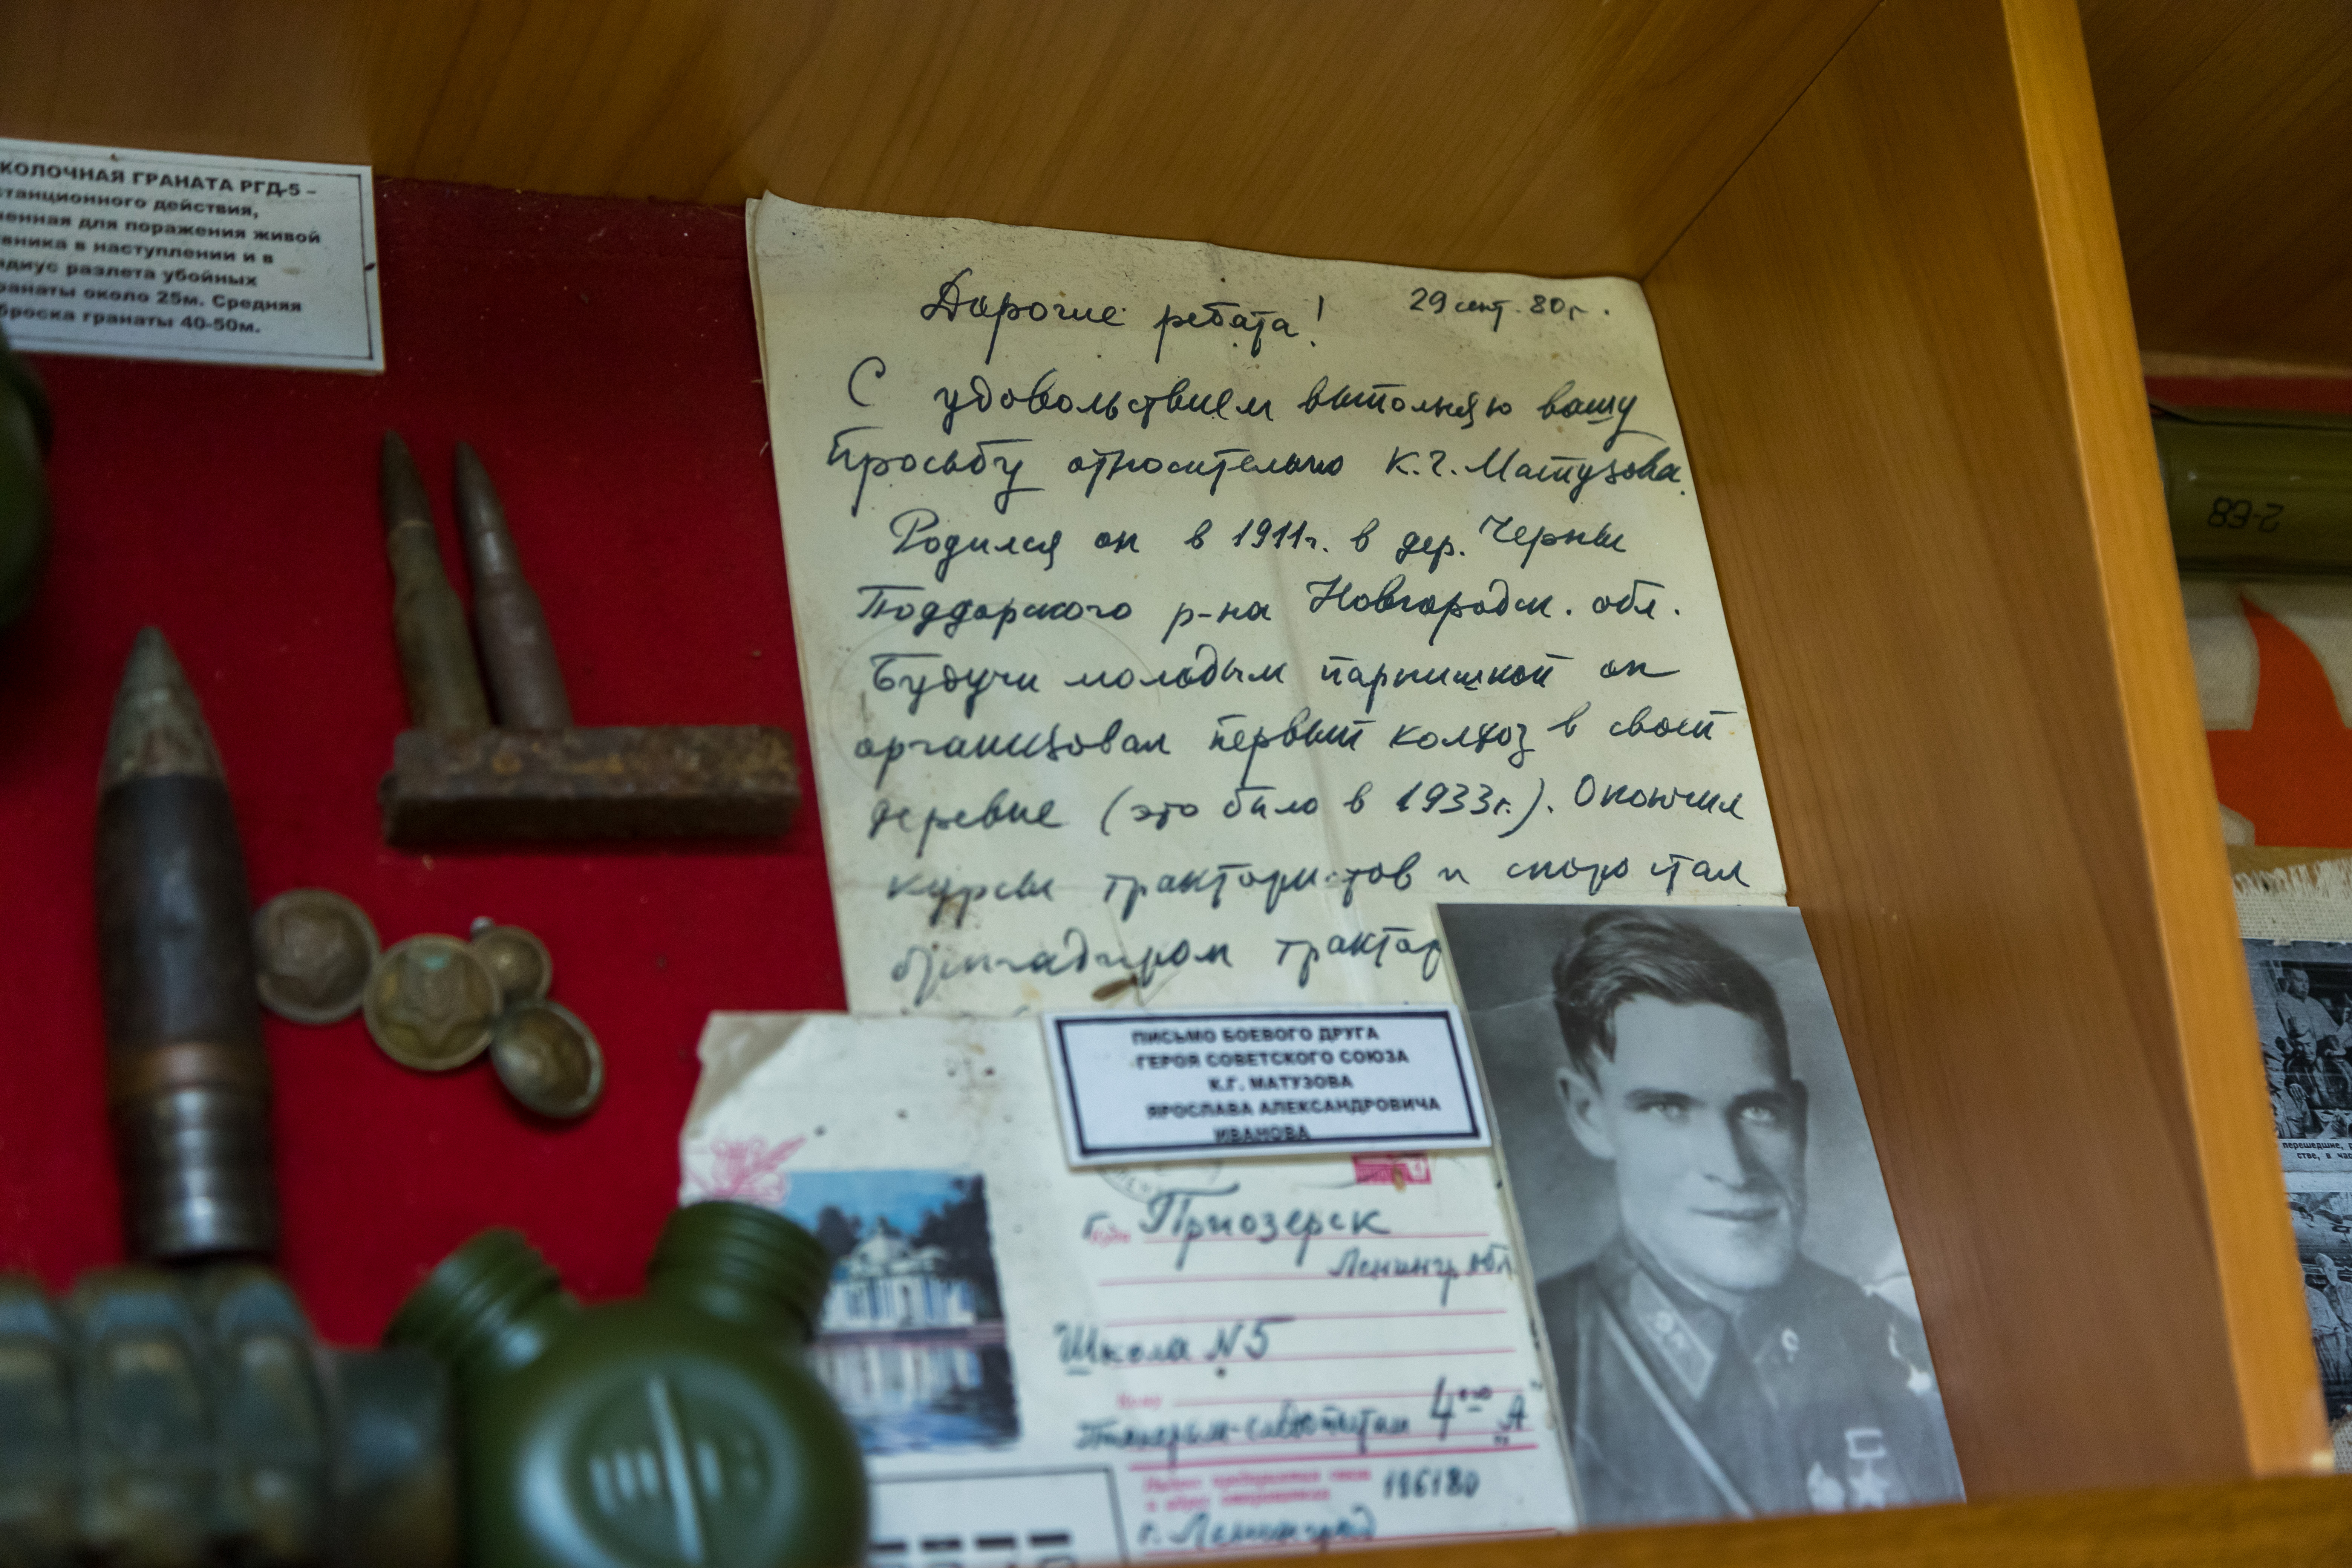 КОЛОЧНАЯ ГРАНАТА РГД-5 –
станционного действия,
ненная для поражения живой
вника в наступлении и в
адиус разлета убойных
ранаты около 25м. Средняя
броска гранаты 40-50м.
Дорогие ребята!
29 сент. 80г.
С удовольствием выполняю вашу
просьбу относительно К.Г. Матузова.
Родился он в 1911г. в дер. Черны
Поддорского р-на Новгородск. обл.
Будучи молодым парнишкой он
организовал первый колхоз в своей
деревне (это было в 1933г.). Окончил
курсы трактористов и скоро стал
бригадиром трактор
ПИСЬМО БОЕВОГО ДРУГА
ГЕРОЯ СОВЕТСКОГО СОЮЗА
К.Г. МАТУЗОВА
ЯРОСЛАВА АЛЕКСАНДРОВИЧА
ИВАНОВА
Куда г. Приозерск
Ленингр. обл
Школа N5
Кому
Пионерам-следопытам 4го "А"
Индекс предприятия связи
и адрес отправителя 196180
г. Ленинград
2-68
перешедшие,
стве, в час